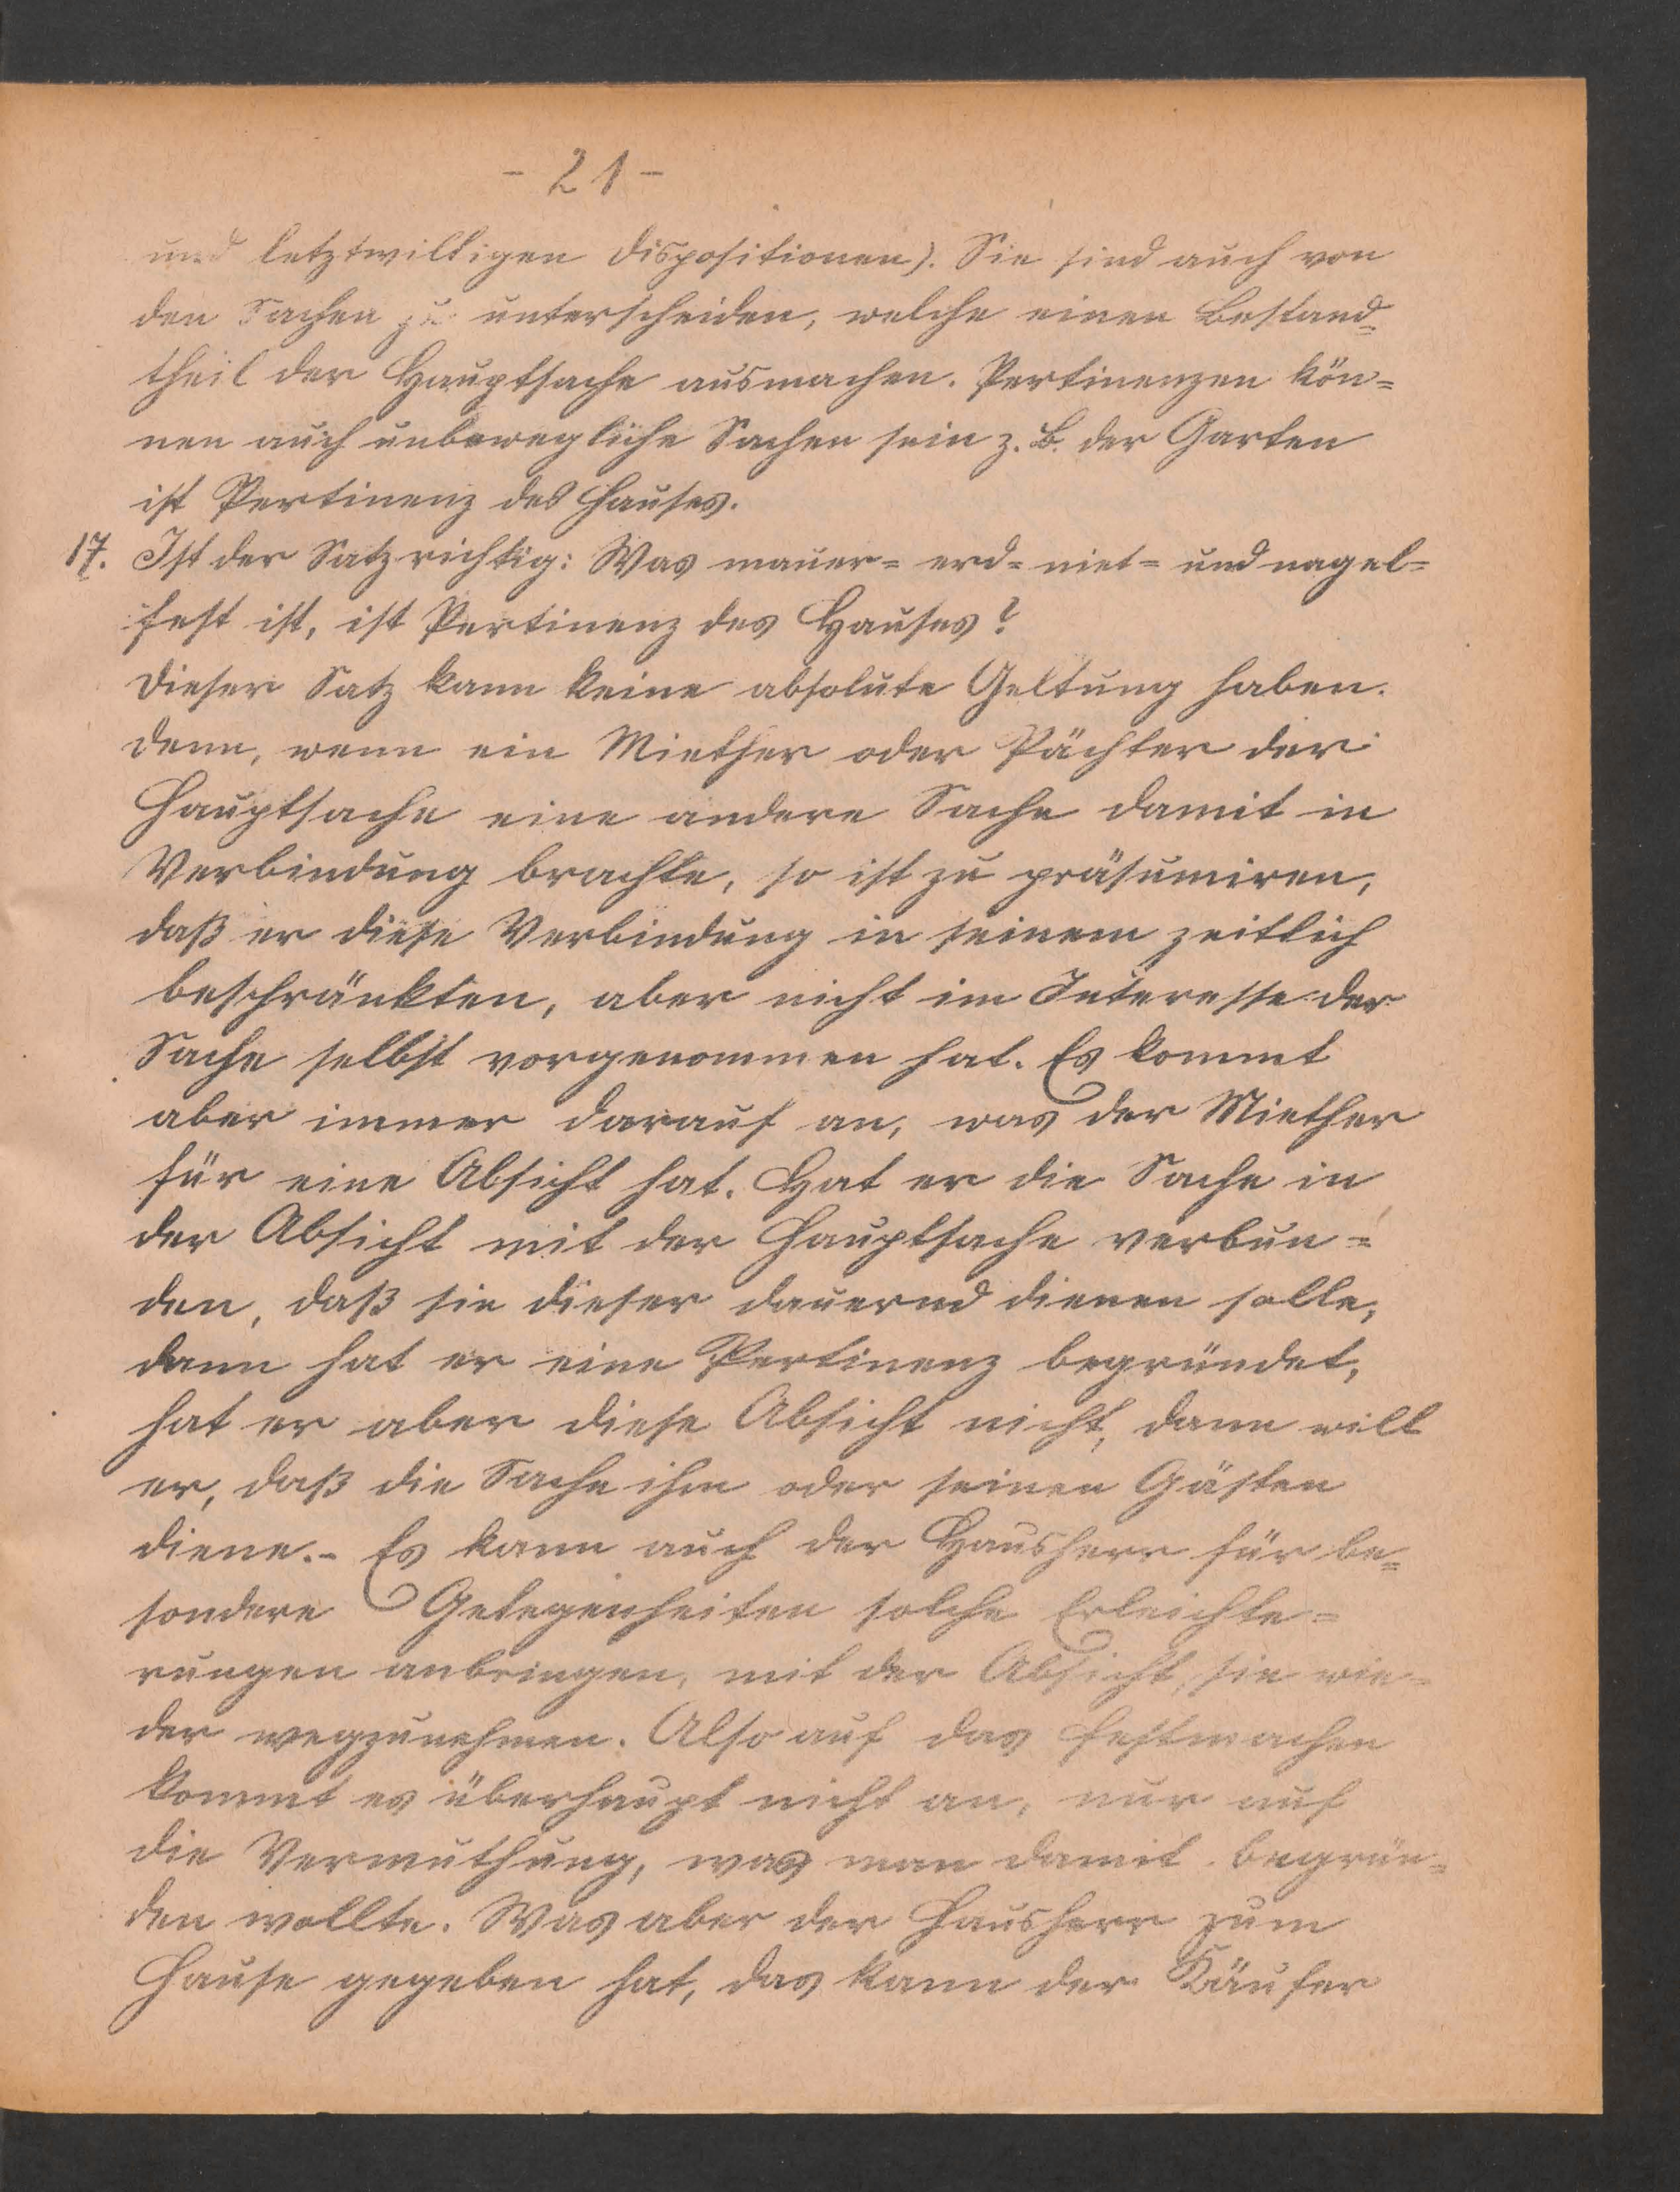 - 21 -
und letztwilligen Dispositionen). Sie sind auch von
den Sachen zu unterscheiden, welche einen Bestand=
theil der Hauptsache ausmachen. Pertinenzen kön=
nen auch unbewegliche Sachen sein z. B. der Garten
ist Pertinenz des Hauses.
17. Ist der Satz richtig: Was mauer= erd= niet= und nagel=
fest ist, ist Pertinenz des Hauses?
Dieser Satz kann keine absolute Geltung haben.
Denn, wenn ein Miether oder Pächter der
Hauptsache eine andere Sache damit in
Verbindung brachte, so ist zu präsumiren,
daß er diese Verbindung in seinem zeitlich
beschränkten, aber nicht im Interesse der
Sache selbst vorgenommen hat. Es kommt
aber immer darauf an, was der Miether
für eine Absicht hat. Hat er die Sache in
der Absicht mit der Hauptsache verbun=
den, daß sie dieser dauernd dienen solle,
dann hat er eine Pertinenz begründet,
hat er aber diese Absicht nicht, dann will
er, daß die Sache ihm oder seinen Gästen
diene.- Es kann auch der Hausherr für be=
sondere Gelegenheiten solche Erleichte=
rungen anbringen, mit der Absicht, sie wie=
der wegzunehmen. Also auf das Festmachen
kommt es überhaupt nicht an, nur auf
die Vermuthung, was man damit begrün=
den wollte. Was aber der Hausherr zum
Hause gegeben hat, das kann der Käufer